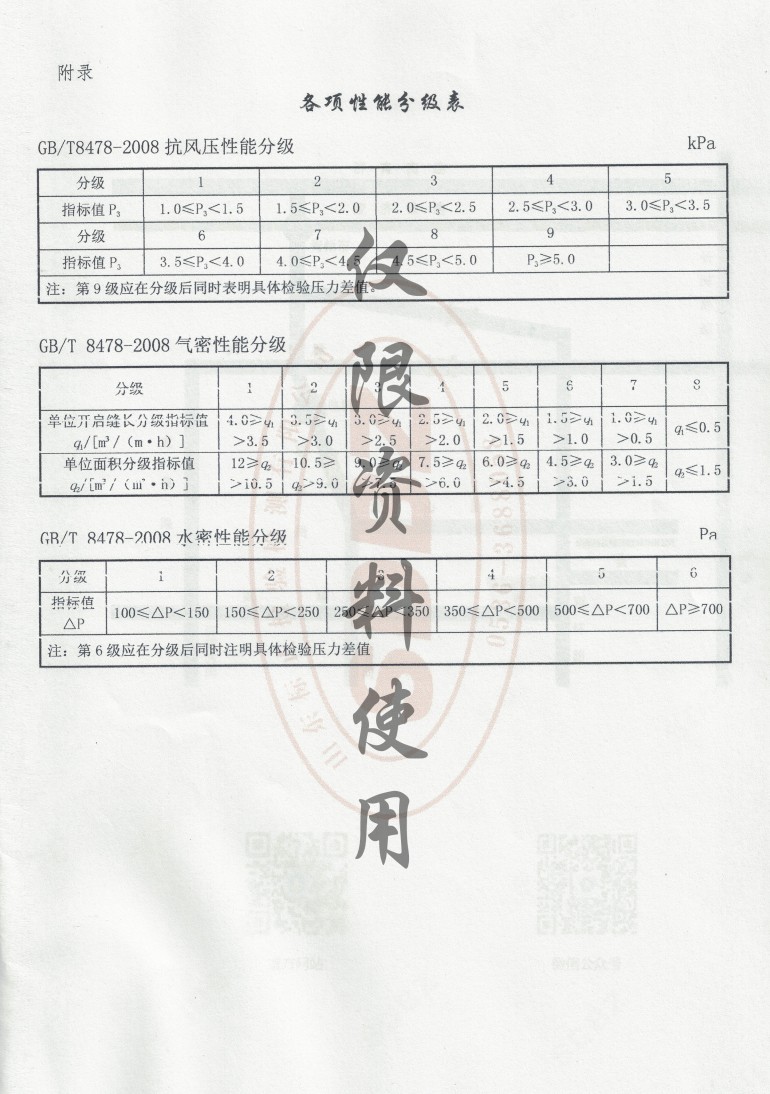 附录
各项性能分级表
GB/T8478-2008 抗风压性能分级 kPa
分级 1 2 3 4 5
指标值 P₃ 1.0≤P₃＜1.5 1.5≤P₃＜2.0 2.0≤P₃＜2.5 2.5≤P₃＜3.0 3.0≤P₃＜3.5
分级 6 7 8 9
指标值 P₃ 3.5≤P₃＜4.0 4.0≤P₃＜4.5 4.5≤P₃＜5.0 P₃≥5.0
注：第 9 级应在分级后同时表明具体检验压力差值。
GB/T 8478-2008 气密性能分级
分级 1 2 3 4 5 6 7 8
单位开启缝长分级指标值 4.0≥q₁ 3.5≥q₁ 3.0≥q₁ 2.5≥q₁ 2.0≥q₁ 1.5≥q₁ 1.0≥q₁ q₁≤0.5
q₁/[m³/（m·h）] ＞3.5 ＞3.0 ＞2.5 ＞2.0 ＞1.5 ＞1.0 ＞0.5
单位面积分级指标值 12≥q₂ 10.5≥ 9.0≥q₂ 7.5≥q₂ 6.0≥q₂ 4.5≥q₂ 3.0≥q₂ q₂≤1.5
q₂/[m³/（m²·h）] ＞10.5 q₂＞9.0 ＞7.5 ＞6.0 ＞4.5 ＞3.0 ＞1.5
GB/T 8478-2008 水密性能分级 Pa
分级 1 2 3 4 5 6
指标值
△P 100≤△P＜150 150≤△P＜250 250≤△P＜350 350≤△P＜500 500≤△P＜700 △P≥700
注：第 6 级应在分级后同时注明具体检验压力差值
仅限资料使用